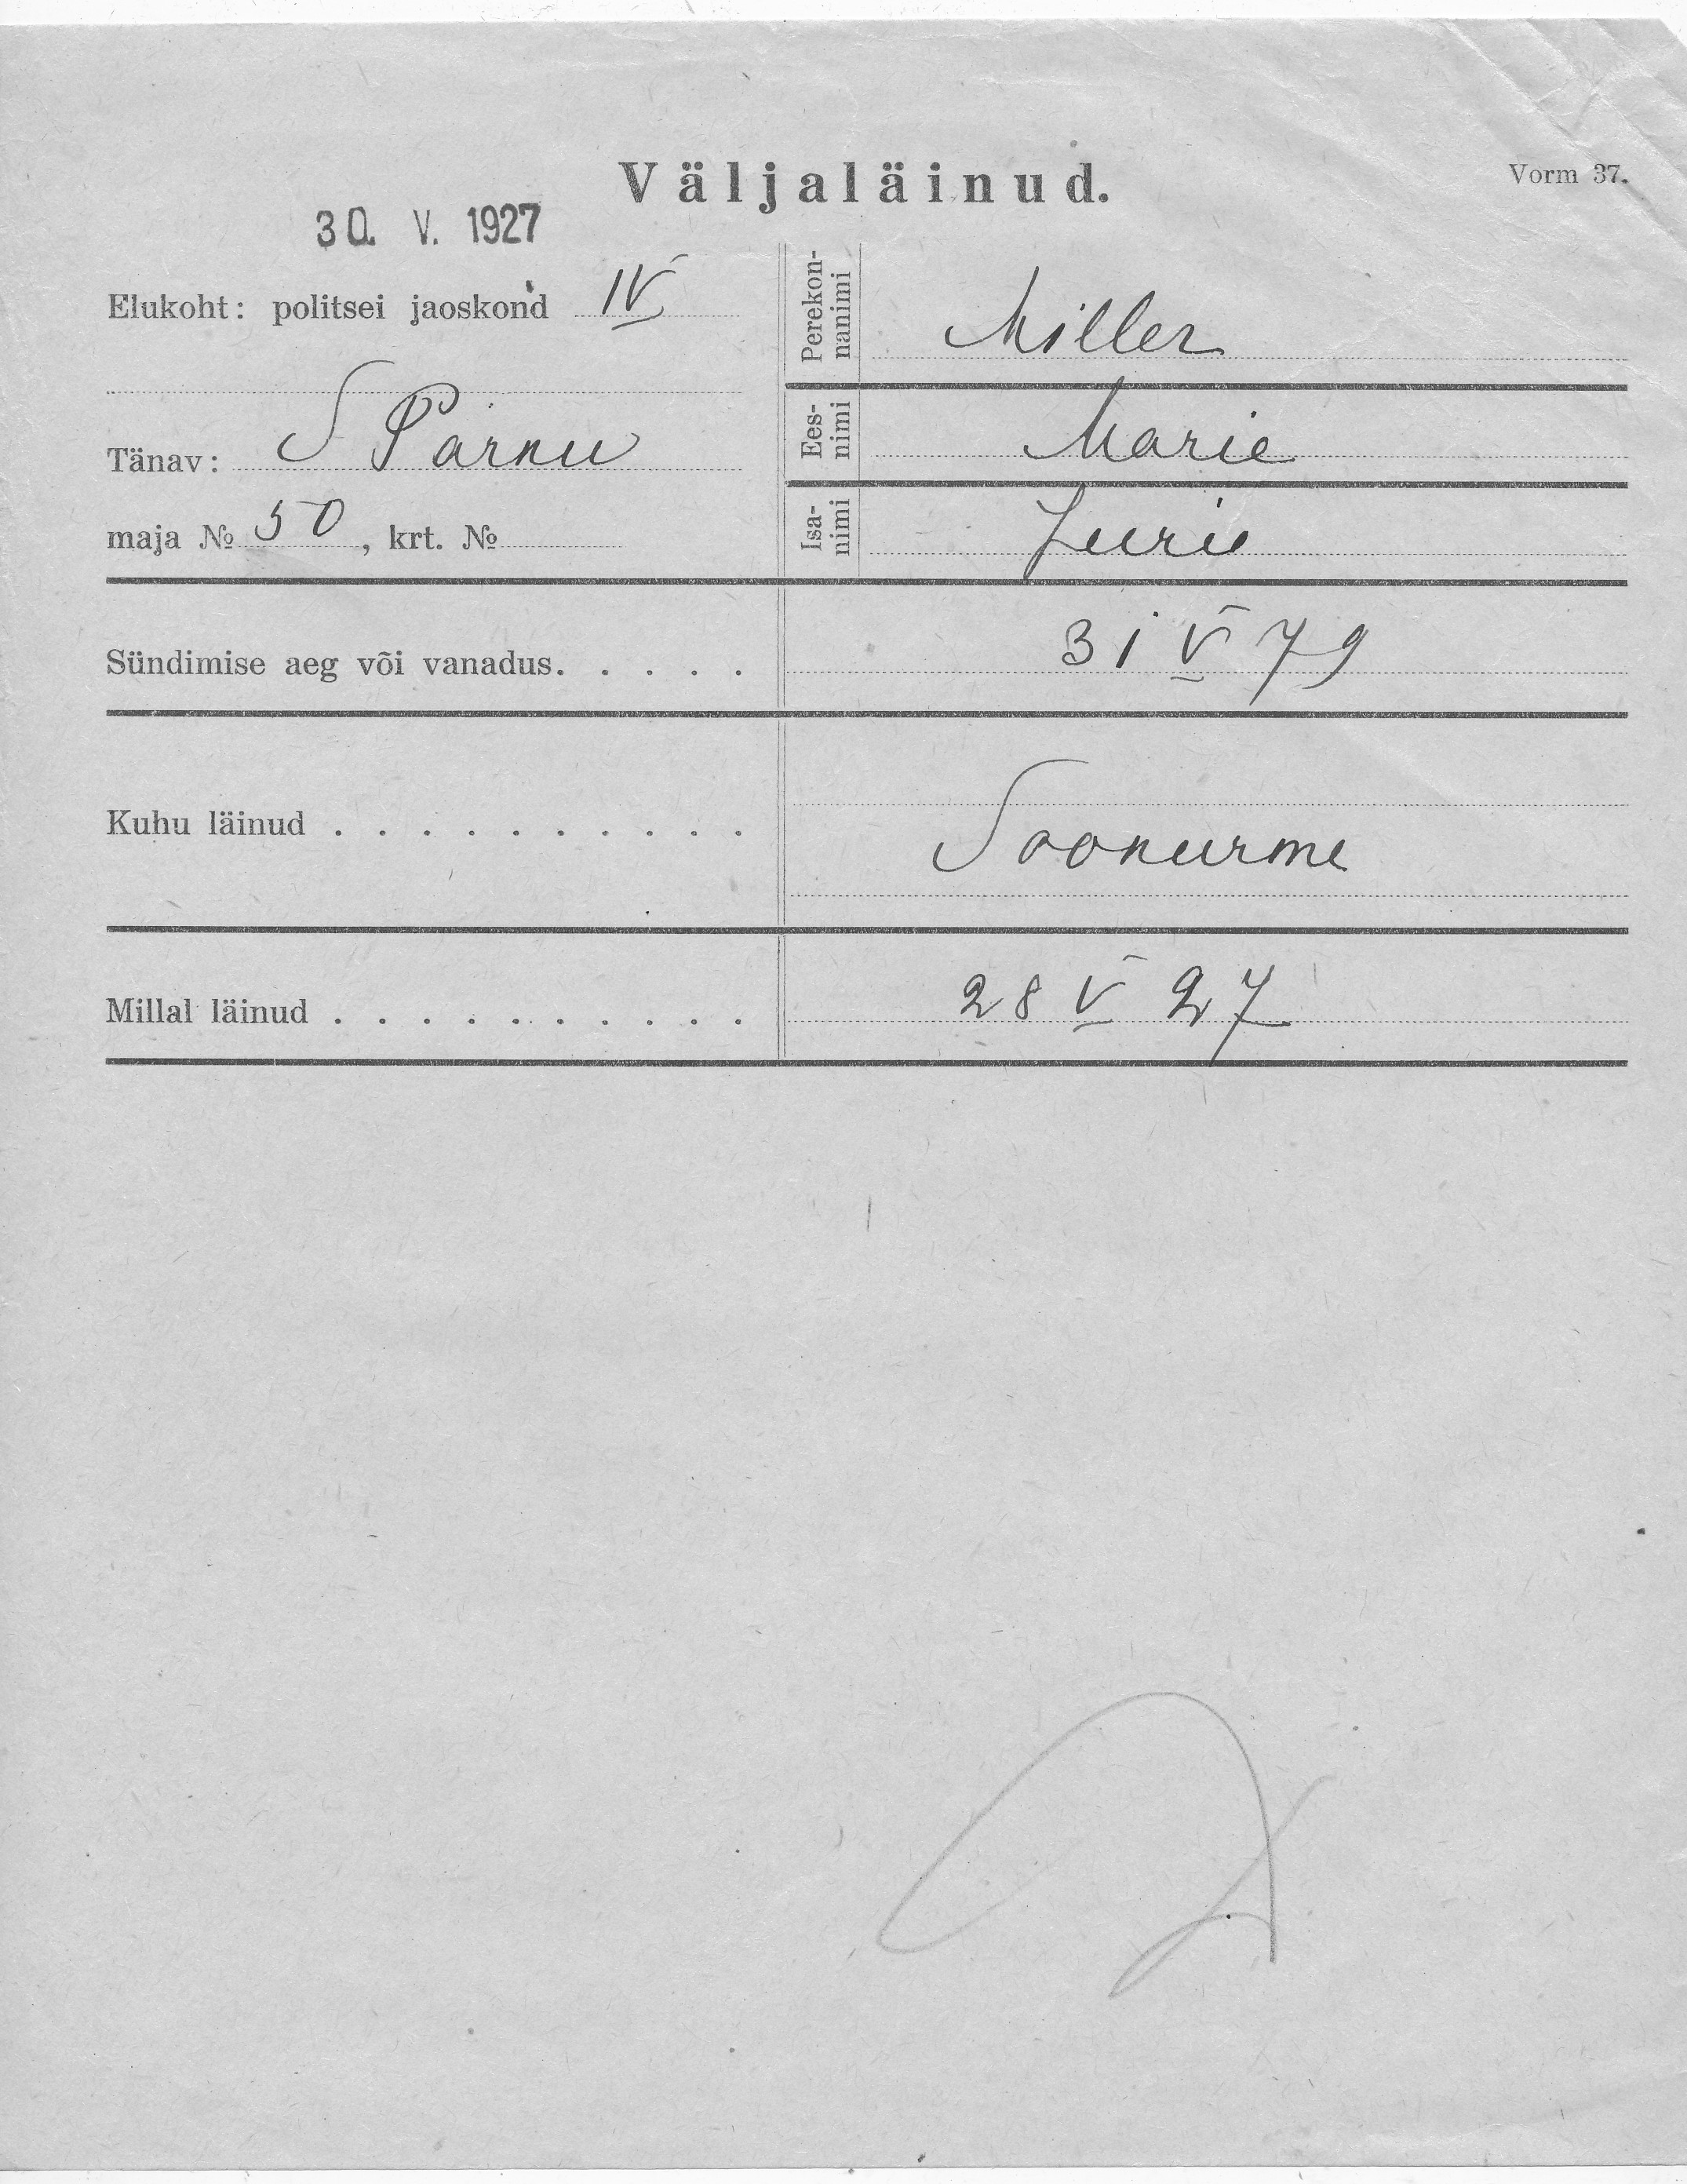 Väljaläinud.
Vorm 37.
30. V. 1927
Elukoht: politsei jaoskond IV
Tänav: S Pärnu
maja № 50, krt. №
Perekon-
nanimi
Miller
Ees-
nimi
Marie
Isa-
nimi
Jurie
Sündimise aeg või vanadus. . . . . 31 V 79
Kuhu läinud . . . . . . . . . . Soonurme
Millal läinud . . . . . . . . . . 28 V 27